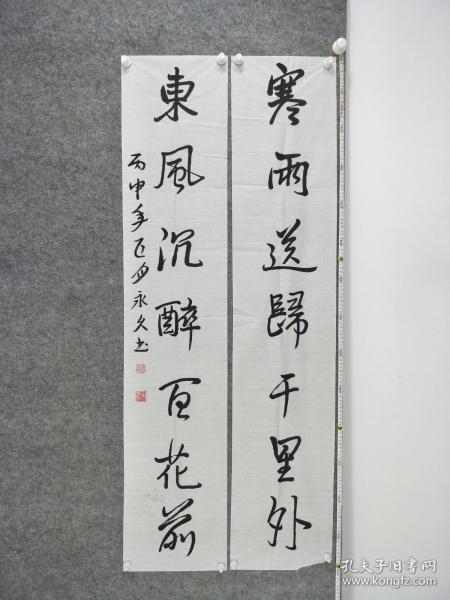 寒雨送歸千里外
東風沉醉百花前
丙申年 永久书
孔夫子旧书网
www.kongfz.com